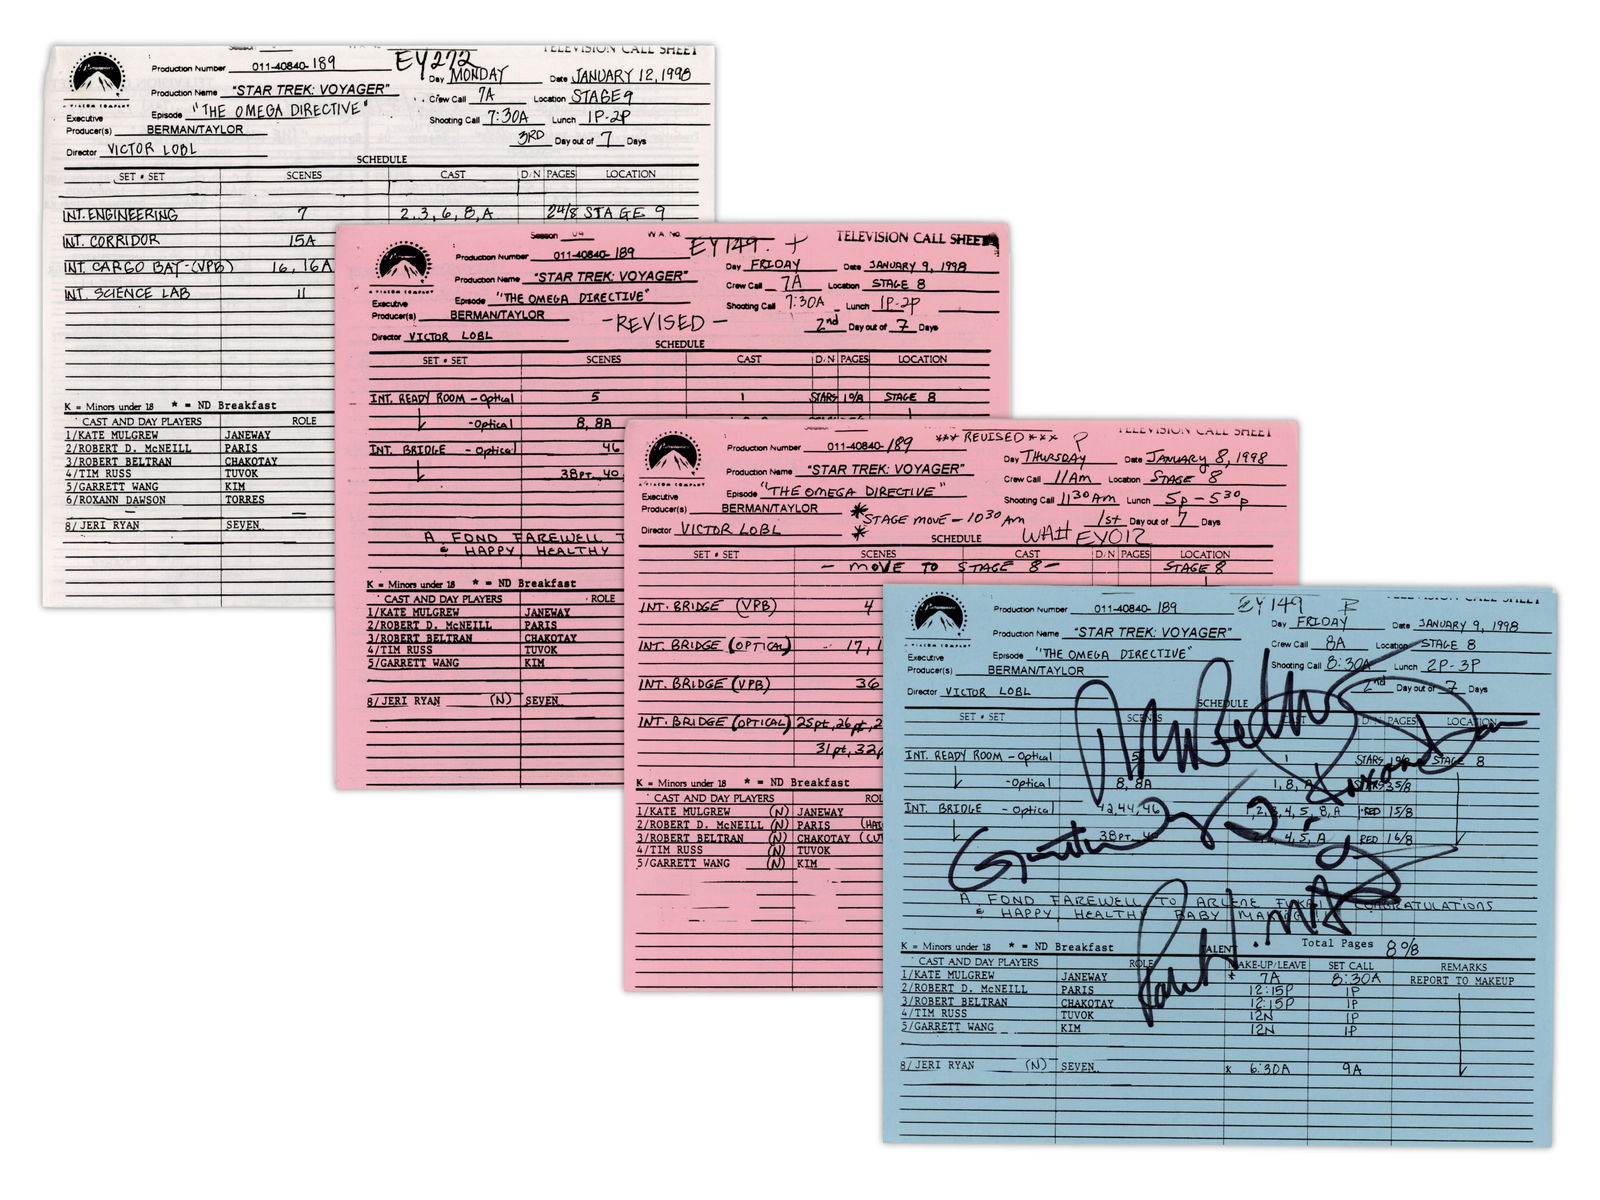 TELEVISION CALL SHEET
Production Number 011-40840-189 EY272
Day MONDAY Date JANUARY 12, 1998
Production Name "STAR TREK: VOYAGER"
Crew Call 7A Location STAGE 9
A VIACOM COMPANY
Episode "THE OMEGA DIRECTIVE"
Shooting Call 7:30A Lunch 1P-2P
Executive
Producer(s) BERMAN/TAYLOR
3RD Day out of 7 Days
Director VICTOR LOBL
SCHEDULE
SET • SET SCENES CAST D/N PAGES LOCATION
INT. ENGINEERING 7 2,3,6,8,A 24/8 STAGE 9
INT. CORRIDOR 15A
INT. CARGO BAY-(VPB) 16, 16A
INT. SCIENCE LAB 11
K = Minors under 18 * = ND Breakfast
CAST AND DAY PLAYERS ROLE
1/KATE MULGREW JANEWAY
2/ROBERT D. McNEILL PARIS
3/ROBERT BELTRAN CHAKOTAY
4/TIM RUSS TUVOK
5/GARRETT WANG KIM
6/ROXANN DAWSON TORRES
8/JERI RYAN SEVEN
Season 04 W.A. No. EY149 TELEVISION CALL SHEET
Production Number 011-40840-189
Day FRIDAY Date JANUARY 9, 1998
Production Name "STAR TREK: VOYAGER"
Crew Call 7A Location STAGE 8
A VIACOM COMPANY
Episode "THE OMEGA DIRECTIVE"
Shooting Call 7:30A Lunch 1P-2P
Executive
Producer(s) BERMAN/TAYLOR
-REVISED-
2nd Day out of 7 Days
Director VICTOR LOBL
SCHEDULE
SET • SET SCENES CAST D/N PAGES LOCATION
INT. READY ROOM - Optical 5 1 STARS 19/8 STAGE 8
-Optical 8, 8A
INT. BRIDGE - Optical 46
38PT., 40
A FOND FAREWELL
& HAPPY, HEALTHY
K = Minors under 18 * = ND Breakfast
CAST AND DAY PLAYERS ROLE
1/KATE MULGREW JANEWAY
2/ROBERT D. McNEILL PARIS
3/ROBERT BELTRAN CHAKOTAY
4/TIM RUSS TUVOK
5/GARRETT WANG KIM
8/JERI RYAN (N) SEVEN
TELEVISION CALL SHEET
Production Number 011-40840-189 *** REVISED *** P
Day THURSDAY Date JANUARY 8, 1998
Production Name "STAR TREK: VOYAGER"
Crew Call 11AM Location STAGE 8
A VIACOM COMPANY
Episode "THE OMEGA DIRECTIVE"
Shooting Call 11 30 AM Lunch 5p-5 30 p
Executive
Producer(s) BERMAN/TAYLOR
* STAGE MOVE - 10 30 AM
1st Day out of 7 Days
Director VICTOR LOBL *
SCHEDULE WA# EY012
SET • SET SCENES CAST D/N PAGES LOCATION
- MOVE TO STAGE 8 - STAGE 8
INT. BRIDGE (VPB) 4
INT. BRIDGE (OPTICAL) 17, 1
INT. BRIDGE (VPB) 36
INT. BRIDGE (OPTICAL) 25pt, 26pt, 2
31pt, 32
K = Minors under 18 * = ND Breakfast
CAST AND DAY PLAYERS ROL
1/KATE MULGREW (N) JANEWAY
2/ROBERT D. McNEILL (N) PARIS
3/ROBERT BELTRAN (N) CHAKOTAY
4/TIM RUSS (N) TUVOK
5/GARRETT WANG (N) KIM
TELEVISION CALL SHEET
Production Number 011-40840-189 EY149
Day FRIDAY Date JANUARY 9, 1998
Production Name "STAR TREK: VOYAGER"
Crew Call 8A Location STAGE 8
A VIACOM COMPANY
Episode "THE OMEGA DIRECTIVE"
Shooting Call 8:30A Lunch 2P-3P
Executive
Producer(s) BERMAN/TAYLOR
2nd Day out of 7 Days
Director VICTOR LOBL
SCHEDULE
SET • SET SCENES CAST D/N PAGES LOCATION
INT. READY ROOM - Optical 5 1 STARS 19/8 STAGE 8
-Optical 8, 8A 1, 8, A STARS 35/8
INT. BRIDGE - Optical 42,44,46 1,2,3,4,5,8,A RED 15/8
38PT., 40 4,5,A RED 16/8
A FOND FAREWELL TO ARLENE CONGRATULATIONS
& HAPPY, HEALTHY BABY
K = Minors under 18 * = ND Breakfast TALENT Total Pages 8 0/8
CAST AND DAY PLAYERS ROLE MAKE-UP/LEAVE SET CALL REMARKS
1/KATE MULGREW JANEWAY * 7A 8:30A REPORT TO MAKEUP
2/ROBERT D. McNEILL PARIS 12:15P 1P
3/ROBERT BELTRAN CHAKOTAY 12:15P 1P
4/TIM RUSS TUVOK 12N 1P
5/GARRETT WANG KIM 12N 1P
8/JERI RYAN (N) SEVEN * 6:30A 9A